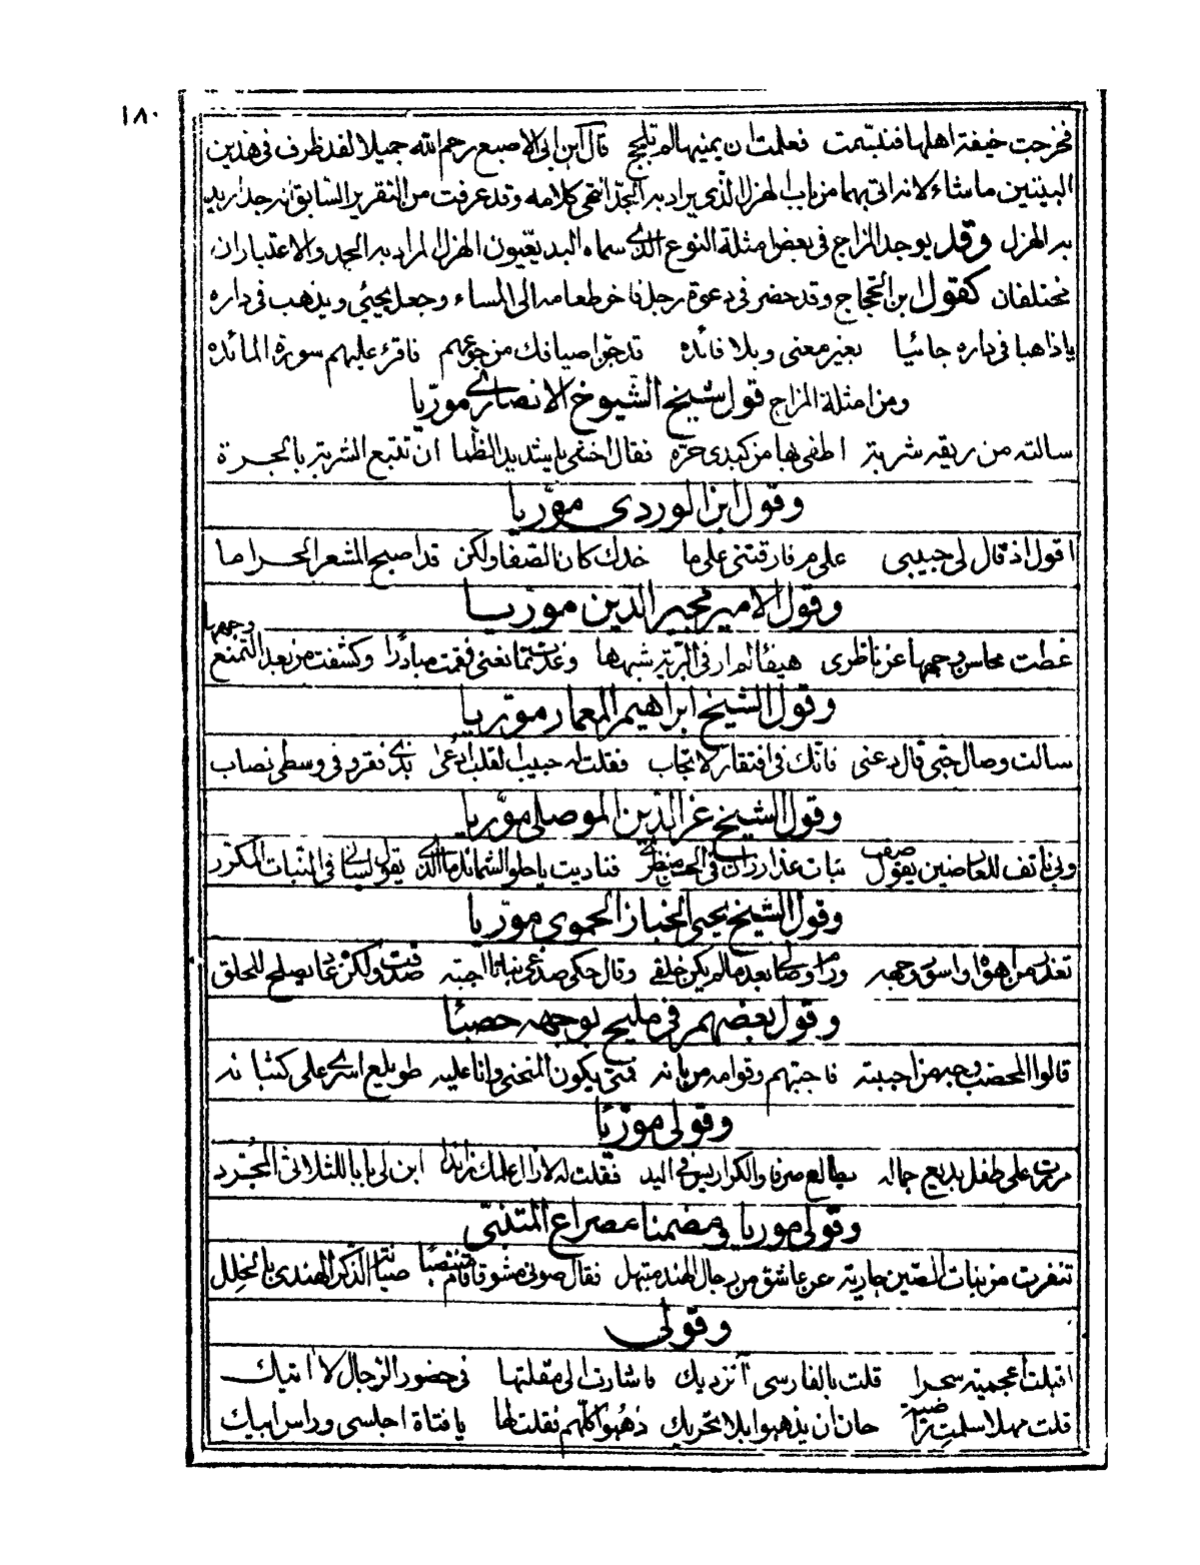 ١٨٠
فخرجت خيفة اهلها فتبسمت فعلمت ان يمينها لم تلجج قال ابن ابى الاصبع رحم الله جميلا لقد ظرف فى هذين
البيتين ماشاء لانه اتى بهما من باب الهزل الذى يراد به الجد انتهى كلامه وقد عرفت من التقرير السابق انه جد اريد
به الهزل وقد يوجد المزاج فى بعض امثلة النوع الذى سماه البديعيون الهزل المراد به الجد والاعتباران
مختلفان كقول ابن الحجاج وقد حضر فى دعوة رجل فاخر طعامه الى المساء وجعل يجيئ ويذهب فى داره
ياذاهبا فى داره جائيا بغير معنى وبلا فائده قد جن اضيافك من جوعهم فاقرء عليهم سورة المائده
ومن امثلة المزاج قول شيخ الشيوخ الانصارى موريا
سالته من ريقه شربة اطفى بها من كبدى حره فقال اخشى يا شديد الظما ان تتبع الشربة بالجرة
وقول ابن الوردى موريا
اقول اذ قال لى حبيبى على م فارقتنى على ما خدك كان الصفا ولكن قد اصبح المشعر الحراما
وقول الامير مجير الدين موريا
غطت محاسن وجهها عن ناظرى هيفا لم ار فى البرية شبهها وغدت تمانعنى فقمت مبادرا وكشفت من بعد التمنع وجهها
وقول الشيخ ابراهيم المعمار موريا
سالت وصال حبى قال دعنى فانك فى افتقار لا تجاب فقلت له حبيب القلب ادعى بذى فقر وفى وسطى نصاب
وقول الشيخ عز الدين الموصلى موريا
ناتف للعارضين يقول صف نبات عذار زان فى الحسن منظرى فناديت يا حلو الشمائل ما الذى يقول لسانى فى النبات المكرر
وقول الشيخ يحيى الخباز الحموى موريا
تعذر من اهواه واسود وجهه ورام وصالى بعد ما لم يكن خلقى وقال حكى صدغى نباتا اجبته صدقت ولكن غدا يصلح للحلق
وقول بعضهم فى مليح بوجهه حصبا
قالوا المحصب وجه من احببته فاجبتهم وقوامه من بانه فمتى يكون المنحنى وانا عليه طويلع اسرى على كثبانه
وقولى موريا
مررت على طفل بديع جماله يطالع صرفا والكراريس فى اليد فقلت له لازال علمك زائدا ابن لى بابا للثلاثى المجرد
وقولى موريا ومضمنا مصراع المتنبى
تنفرت من بنات الصين جارية عن عاشق من رجال الهند مبتهل فقال صونى مشوقا قام منتصبا صيانة الذكر الهندى بالخلل
وقولى
اقبلت اعجمية سحرا قلت بالفارسى آنزديك فاشارت الى مقلتها فى حضور الرجال لا اتيك
قلت مهلا سلمت راضية حان ان يذهبوا بلا تحريك ذهبوا كلهم فقلت لها يا فتاة اجلسى وراس ابيك